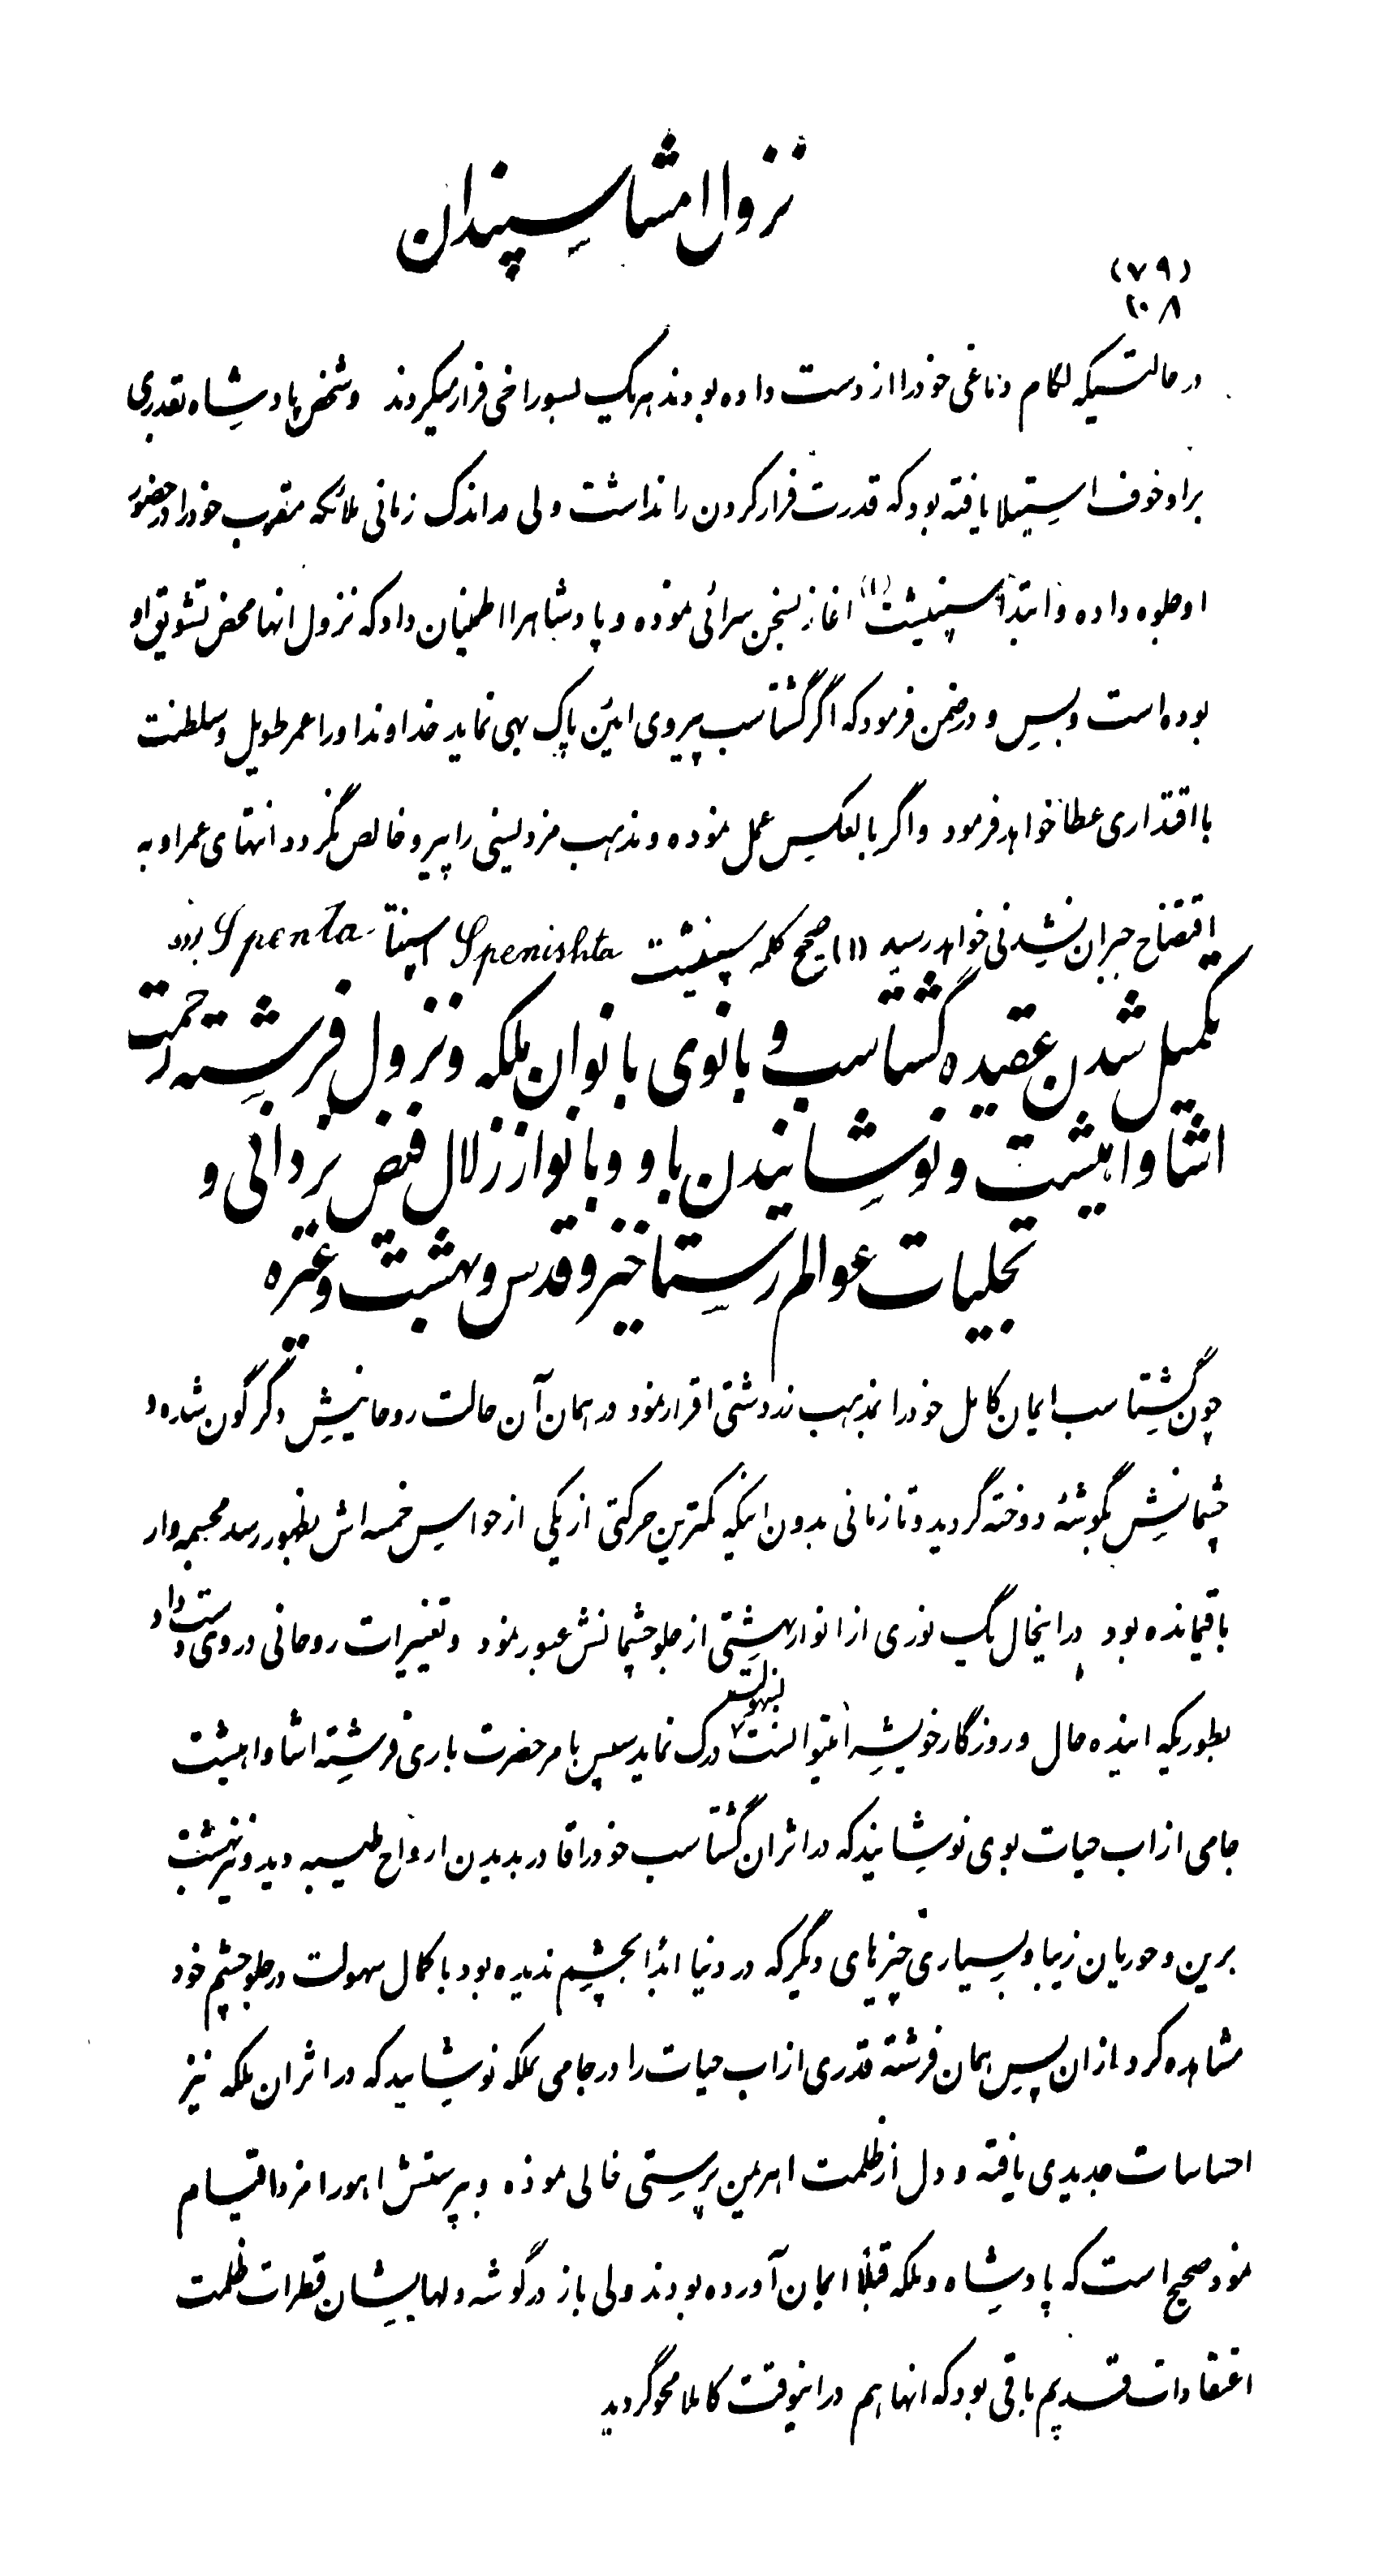 نزول امشاسپندان
(۷۹)
۱۰۸
در حالتیکه لگام دماغی خود را از دست داده بودند هر یک بسوراخی فرار میکردند و شخص پادشاه بقدری
بر او خوف استیلا یافته بود که قدرت فرار کردن را نداشت ولی در اندک زمانی ملائکه مقرب خود را در حضور
او جلوه داده و ابتدا سپنیشت (۱) اغاز بسخن سرائی نموده و پادشاهرا اطمینان داد که نزول انها محض تشویق او
بوده است و بس و در ضمن فرمود که اگر گشتاسب پیروی ائین پاک بهی نماید خداوند او را عمر طویل و سلطنت
با اقتداری عطا خواهد فرمود و اگر بالعکس عمل نموده و مذهب مزدیسنی را پیرو خالص نگردد انتهای عمر او به
افتضاح جبران نشدنی خواهد رسید (۱) صحیح کلمه سپنیشت Spenishta اسپنتا Spenta بود
تکمیل شدن عقیده گشتاسب و بانوی بانوان ملکه و نزول فرشته رحمت
اشاواهیشت و نوشانیدن باو و بانو از زلال فیض یزدانی و
تجلیات عوالم رستاخیز و قدس و بهشت و غیره
چون گشتاسب ایمان کامل خود را بمذهب زردشتی اقرار نمود در همان آن حالت روحانیش دگرگون شده و
چشمانش بگوشهٔ دوخته گردید و تا زمانی بدون اینکه کمترین حرکتی از یکی از حواس خمسه اش بظهور رسد مجسمه وار
باقیمانده بود در اینحال یک نوری از انوار بهشتی از جلو چشمانش عبور نمود و تغییرات روحانی در وی دست داد
بطوریکه اینده حال و روزگار خویش را میتوانست بسهولت درک نماید سپس بامر حضرت باری فرشته اشاواهیشت
جامی از اب حیات بوی نوشانید که در اثر ان گشتاسب خود را قادر بدیدن ارواح طیبه دید و نیز بهشت
برین و حوریان زیبا و بسیاری چیزهای دیگر که در دنیا ابدًا بچشم ندیده بود با کمال سهولت در جلو چشم خود
مشاهده کرد ازان پس همان فرشته قدری از اب حیات را در جامی بملکه نوشانید که در اثر ان ملکه نیز
احساسات جدیدی یافته و دل از ظلمت اهریمن پرستی خالی نموده و بپرستش اهورامزدا قیام
نمود صحیح است که پادشاه و ملکه قبلًا ایمان آورده بودند ولی باز در گوشه دلهایشان قطرات ظلمت
اعتقادات قدیم باقی بود که انها هم در اینوقت کاملا محو گردید